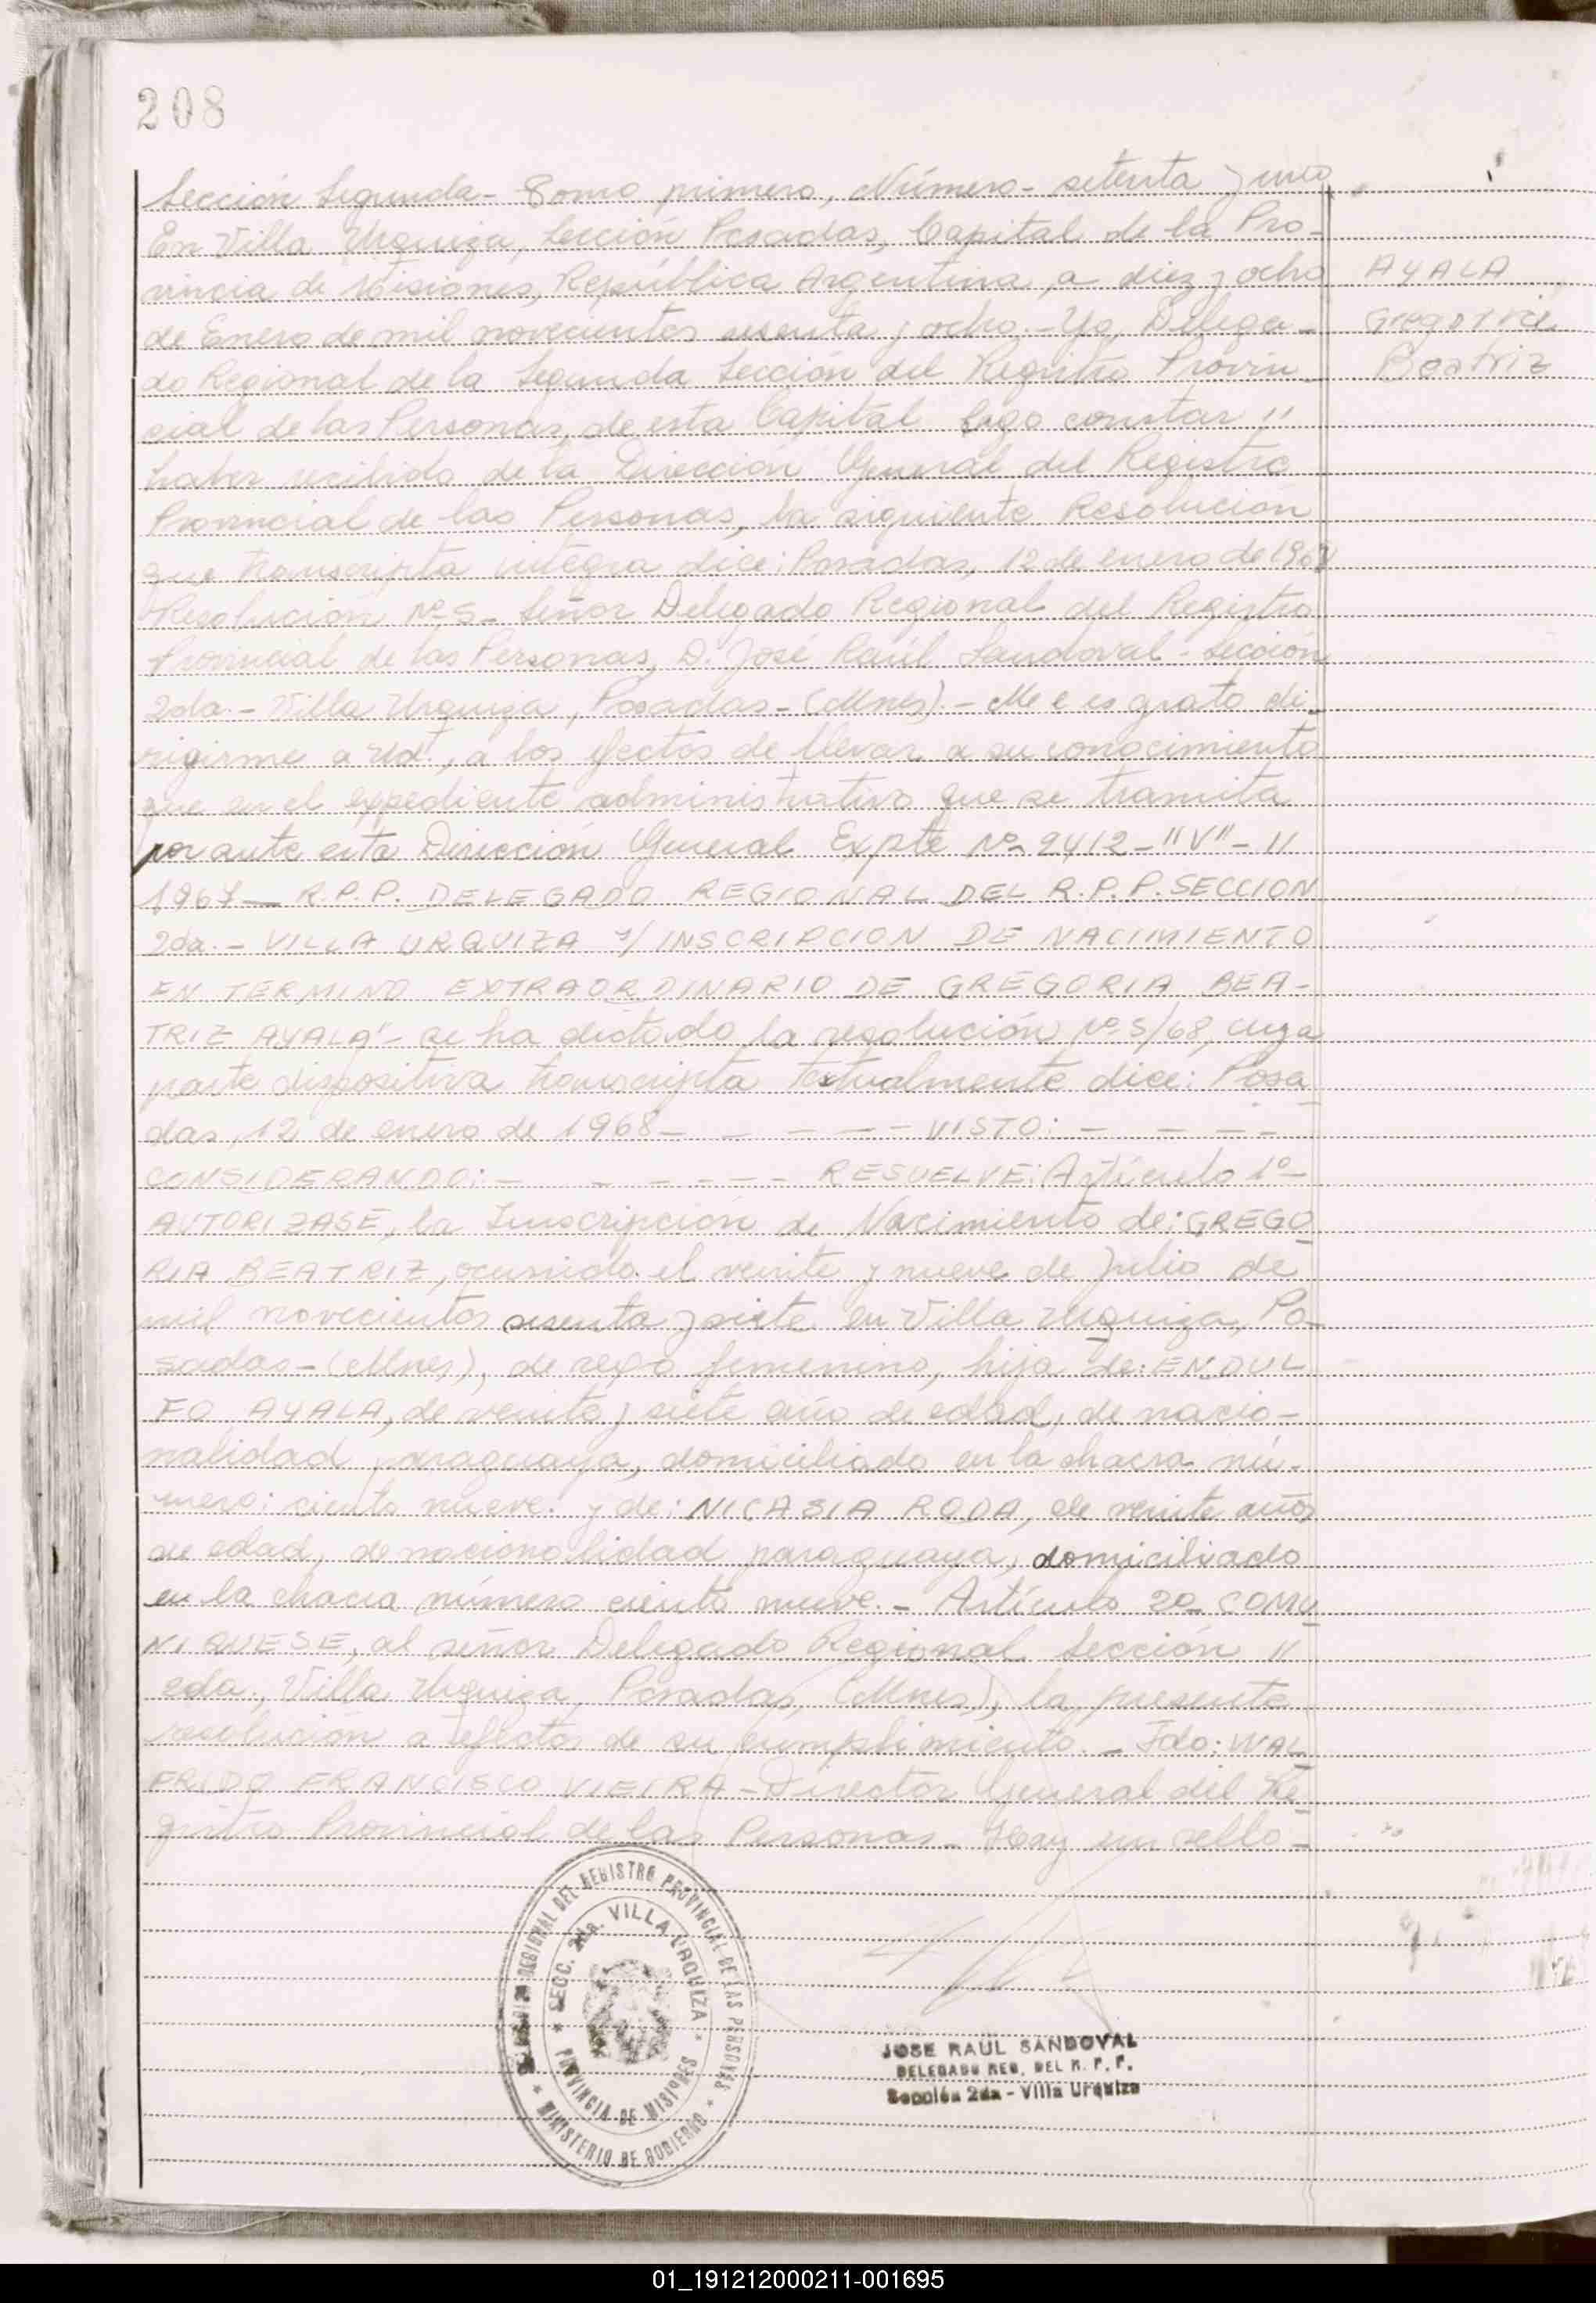 208
Sección Segunda - Tomo primero, Número - setenta y uno
En Villa Urquiza, Sección Posadas, Capital de la Pro-
vincia de Misiones, República Argentina, a diez y ocho
AYALA
de Enero de mil novecientos sesenta y ocho. - Yo, Delega-
Gregoria
do Regional de la Segunda Sección del Registro Provin-
Beatriz
cial de las Personas, de esta Capital hago constar "
haber recibido de la Dirección General del Registro
Provincial de las Personas, la siguiente Resolución
que transcripta integra dice: Posadas, 12 de enero de 1968
Resolución Nº 5 - Señor Delegado Regional del Registro
Provincial de las Personas, D. José Raúl Sandoval - Sección
2da. - Villa Urquiza, Posadas - (Mnes). - Me e es grato di-
rigirme a Ud., a los efectos de llevar a su conocimiento
que en el expediente administrativo que se tramita
por ante esta Dirección General Expte Nº 2412 - "V" - "
1967 - R.P.P. DELEGADO REGIONAL DEL R.P.P. SECCION
2da. - VILLA URQUIZA s/ INSCRIPCION DE NACIMIENTO
EN TERMINO EXTRAORDINARIO DE GREGORIA BEA-
TRIZ AYALA" - se ha dictado la resolución Nº 5/68, cuya
parte dispositiva transcripta textualmente dice: Posa
das, 12 de enero de 1968 - - - - - - VISTO: - - - - -
CONSIDERANDO: - - - - - - - RESUELVE: Artículo 1º -
AUTORIZASE, la Inscripción de Nacimiento de: GREGO
RIA BEATRIZ, ocurrido el veinte y nueve de Julio de
mil novecientos sesenta y siete en Villa Urquiza, Po-
sadas - (Mnes), de sexo femenino, hija de: ENDUL
FO AYALA, de veinte y siete año de edad, de nacio-
nalidad paraguaya, domiciliado en la chacra nú-
mero: ciento nueve. y de: NICASIA RODA, de veinte años
de edad, de nacionalidad paraguaya, domiciliado
en la chacra número ciento nueve. - Artículo 2º - COMU
NIQUESE, al señor Delegado Regional Sección "
2da., Villa Urquiza, Posadas, (Mnes), la presente
resolución a efectos de su cumplimiento. - Fdo: WAL
FRIDO FRANCISCO VIEIRA - Director General del Re-
gistro Provincial de las Personas - Hay un sello -
REGIONAL DEL REGISTRO PROVINCIAL DE LAS PERSONAS
SECC. 2da. VILLA URQUIZA
PROVINCIA DE MISIONES
MINISTERIO DE GOBIERNO
JOSE RAUL SANDOVAL
DELEGADO REG. DEL R. P. P.
Sección 2da - Villa Urquiza
01_191212000211-001695